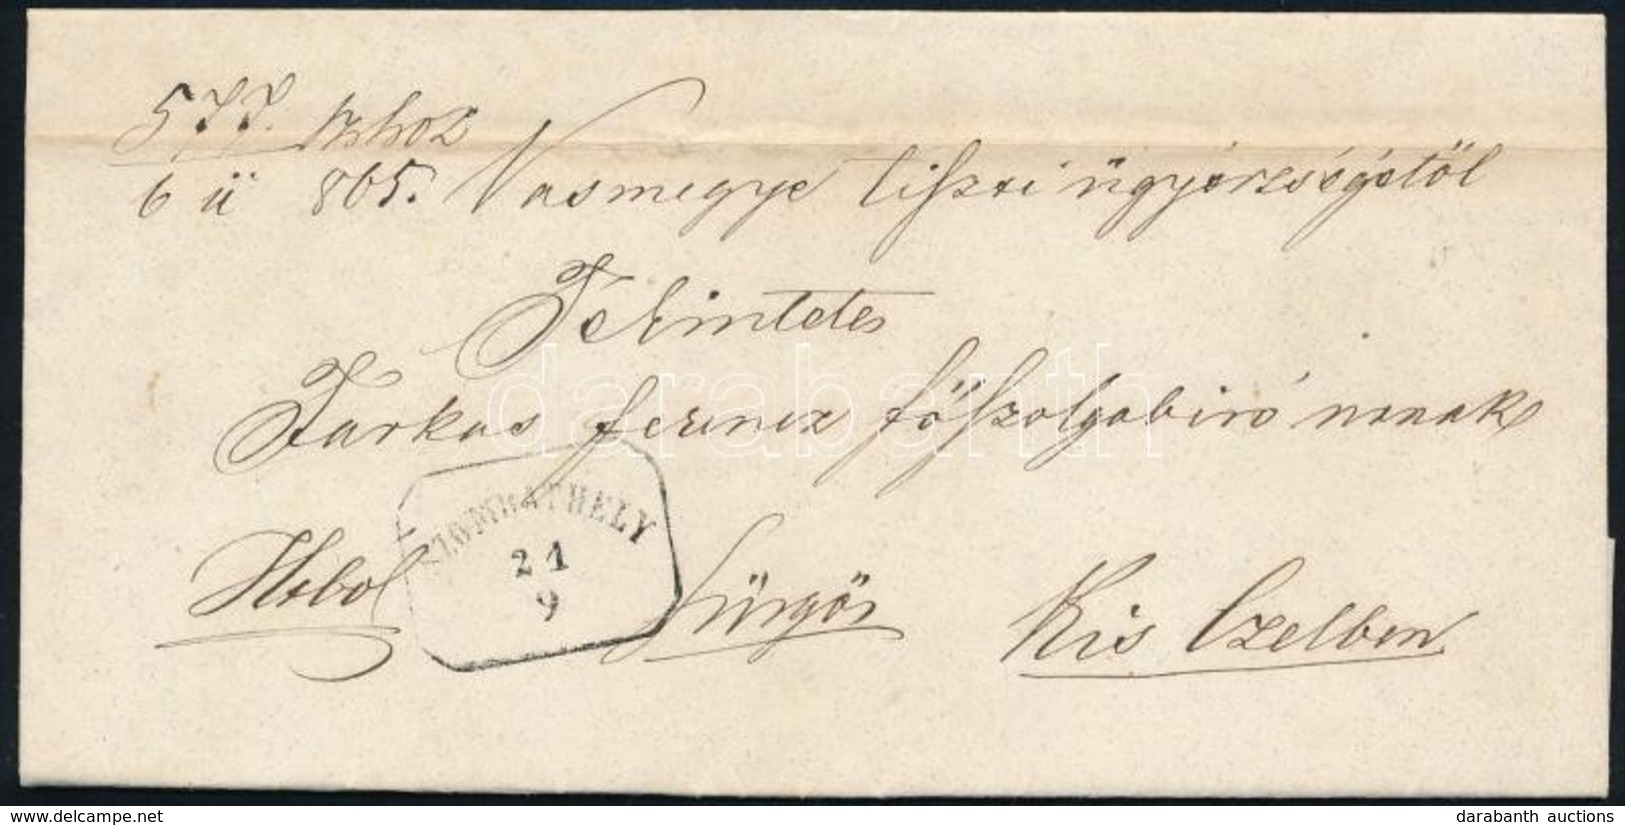 577. szhoz
6 ü 865. Vasmegye tiszti ügyészségétöl
Tekintetes
Farkas ferencz föszolgabiró nrnak
SZOMBATHELY
21
9
Hbol
Sürgös
Kis Czelben
darabanth
delcampe.net
darabanth auctions